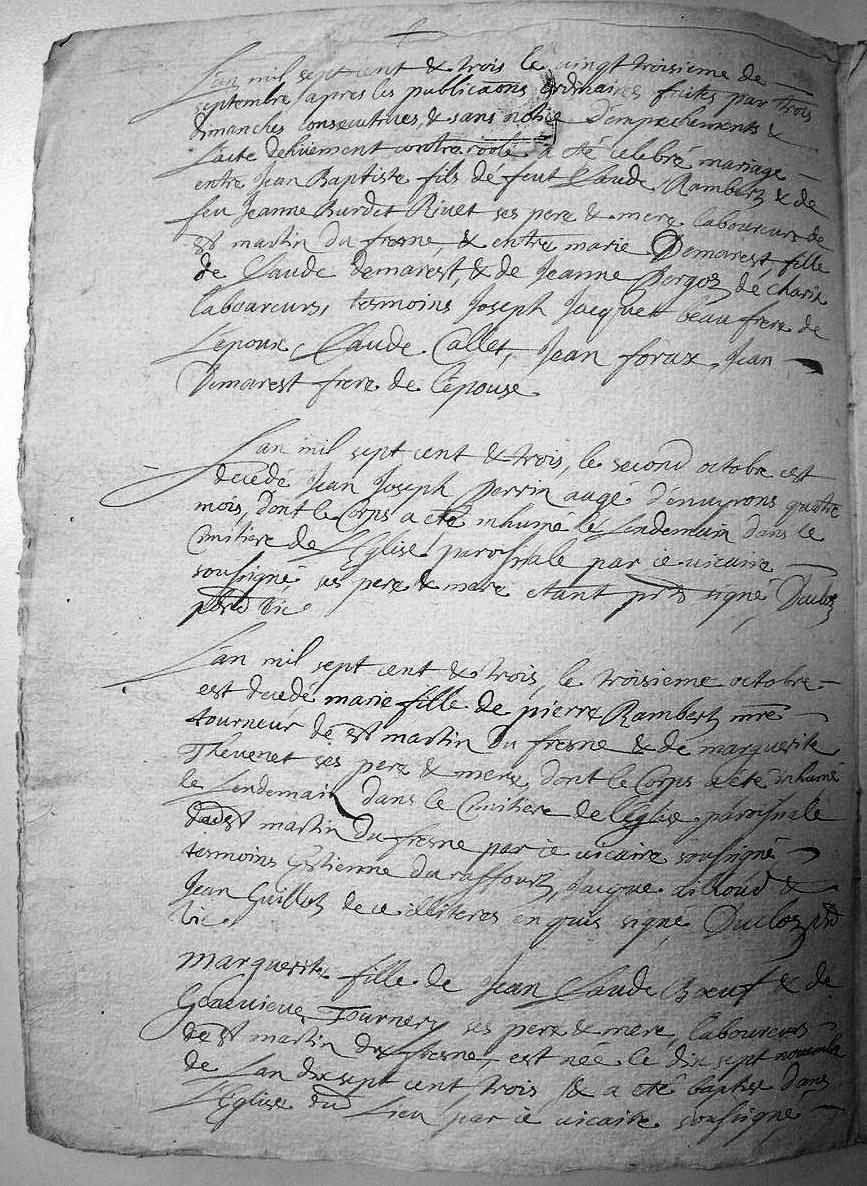 L'an mil sept cent & trois le vingt troisieme de
septembre apres les publicaons ordinaires faites par trois
dimanches consecutives, & sans notice d'empechements &
l'acte dehuement controroolé a été celebré mariage
entre Jean Baptiste fils de feut Claude Rambert & de
feu Jeanne Burdet Rivet ses pere & mere laboureurs de
st martin du fresne, & entre marie Demarest fille
de Claude demarest, & de Jeanne Borgoz de charix
laboureurs, tesmoins Joseph Jacquet beau frere de
L'epoux, Claude Callet, Jean foraz, Jean
Demarest frere de l'epouse
L'an mil sept cent & trois, le second octobre est
decedé Jean Joseph perrin augé d'envyrons quatre
mois, dont le Corps a eté inhumé le Lendemain dans le
Cimitiere de L'Eglise paroissiale par ie vicaire
soussigné ses pere & mere etant signé Duclos
vic
L'an mil sept cent & trois, le troisieme octobre
est decedé marie fille de pierre Rambert mre
tourneur de st martin du fresne & de marguerite
Thevenet ses pere & mere, dont le Corps a eté inhumé
le Lendemain dans le Cimitiere de l'eglise paroissiale
dudt st martin du fresne par ie vicaire soussigné
tesmoins Estienne duraffourt, Jacque &
Jean Guillot de ce illiteres enquis signé Duclos
vic
marguerite fille de Jean Claude Bœuf & de
Genevieve Tournery ses pere & mere, laboureurs
de st martin du fresne, est née le dix sept novembre
de L'an dix sept cent trois & a eté baptise dans
L'Eglise du Lieu par ie vicaire soussigné